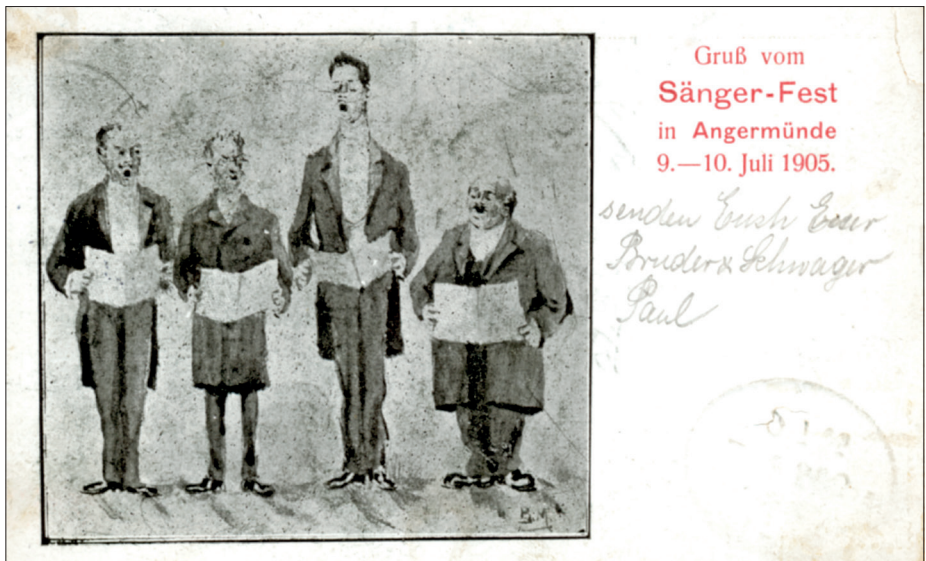 Gruß vom
Sänger-Fest
in Angermünde
9.—10. Juli 1905.
senden Euch Euer
Bruder & Schwager
Paul